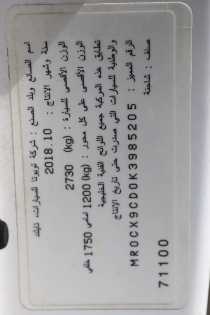 اسم الصانع وبلد الصنع : شركة تويوتا للسيارات، تايلند
سنة وشهر الانتاج : 2018.10
الوزن الأقصى للسيارة : (kg) 2730
الوزن الأقصى على كل محور : (kg) 1200 أمامي 1750 خلفي
تطابق هذه المركبة جميع اللوائح الفنية الخليجية
والوطنية للسيارات التي صدرت حتى تاريخ الانتاج
الرقم المميز : MR0CX9CD0K3985205
صنف : شاحنة
71100